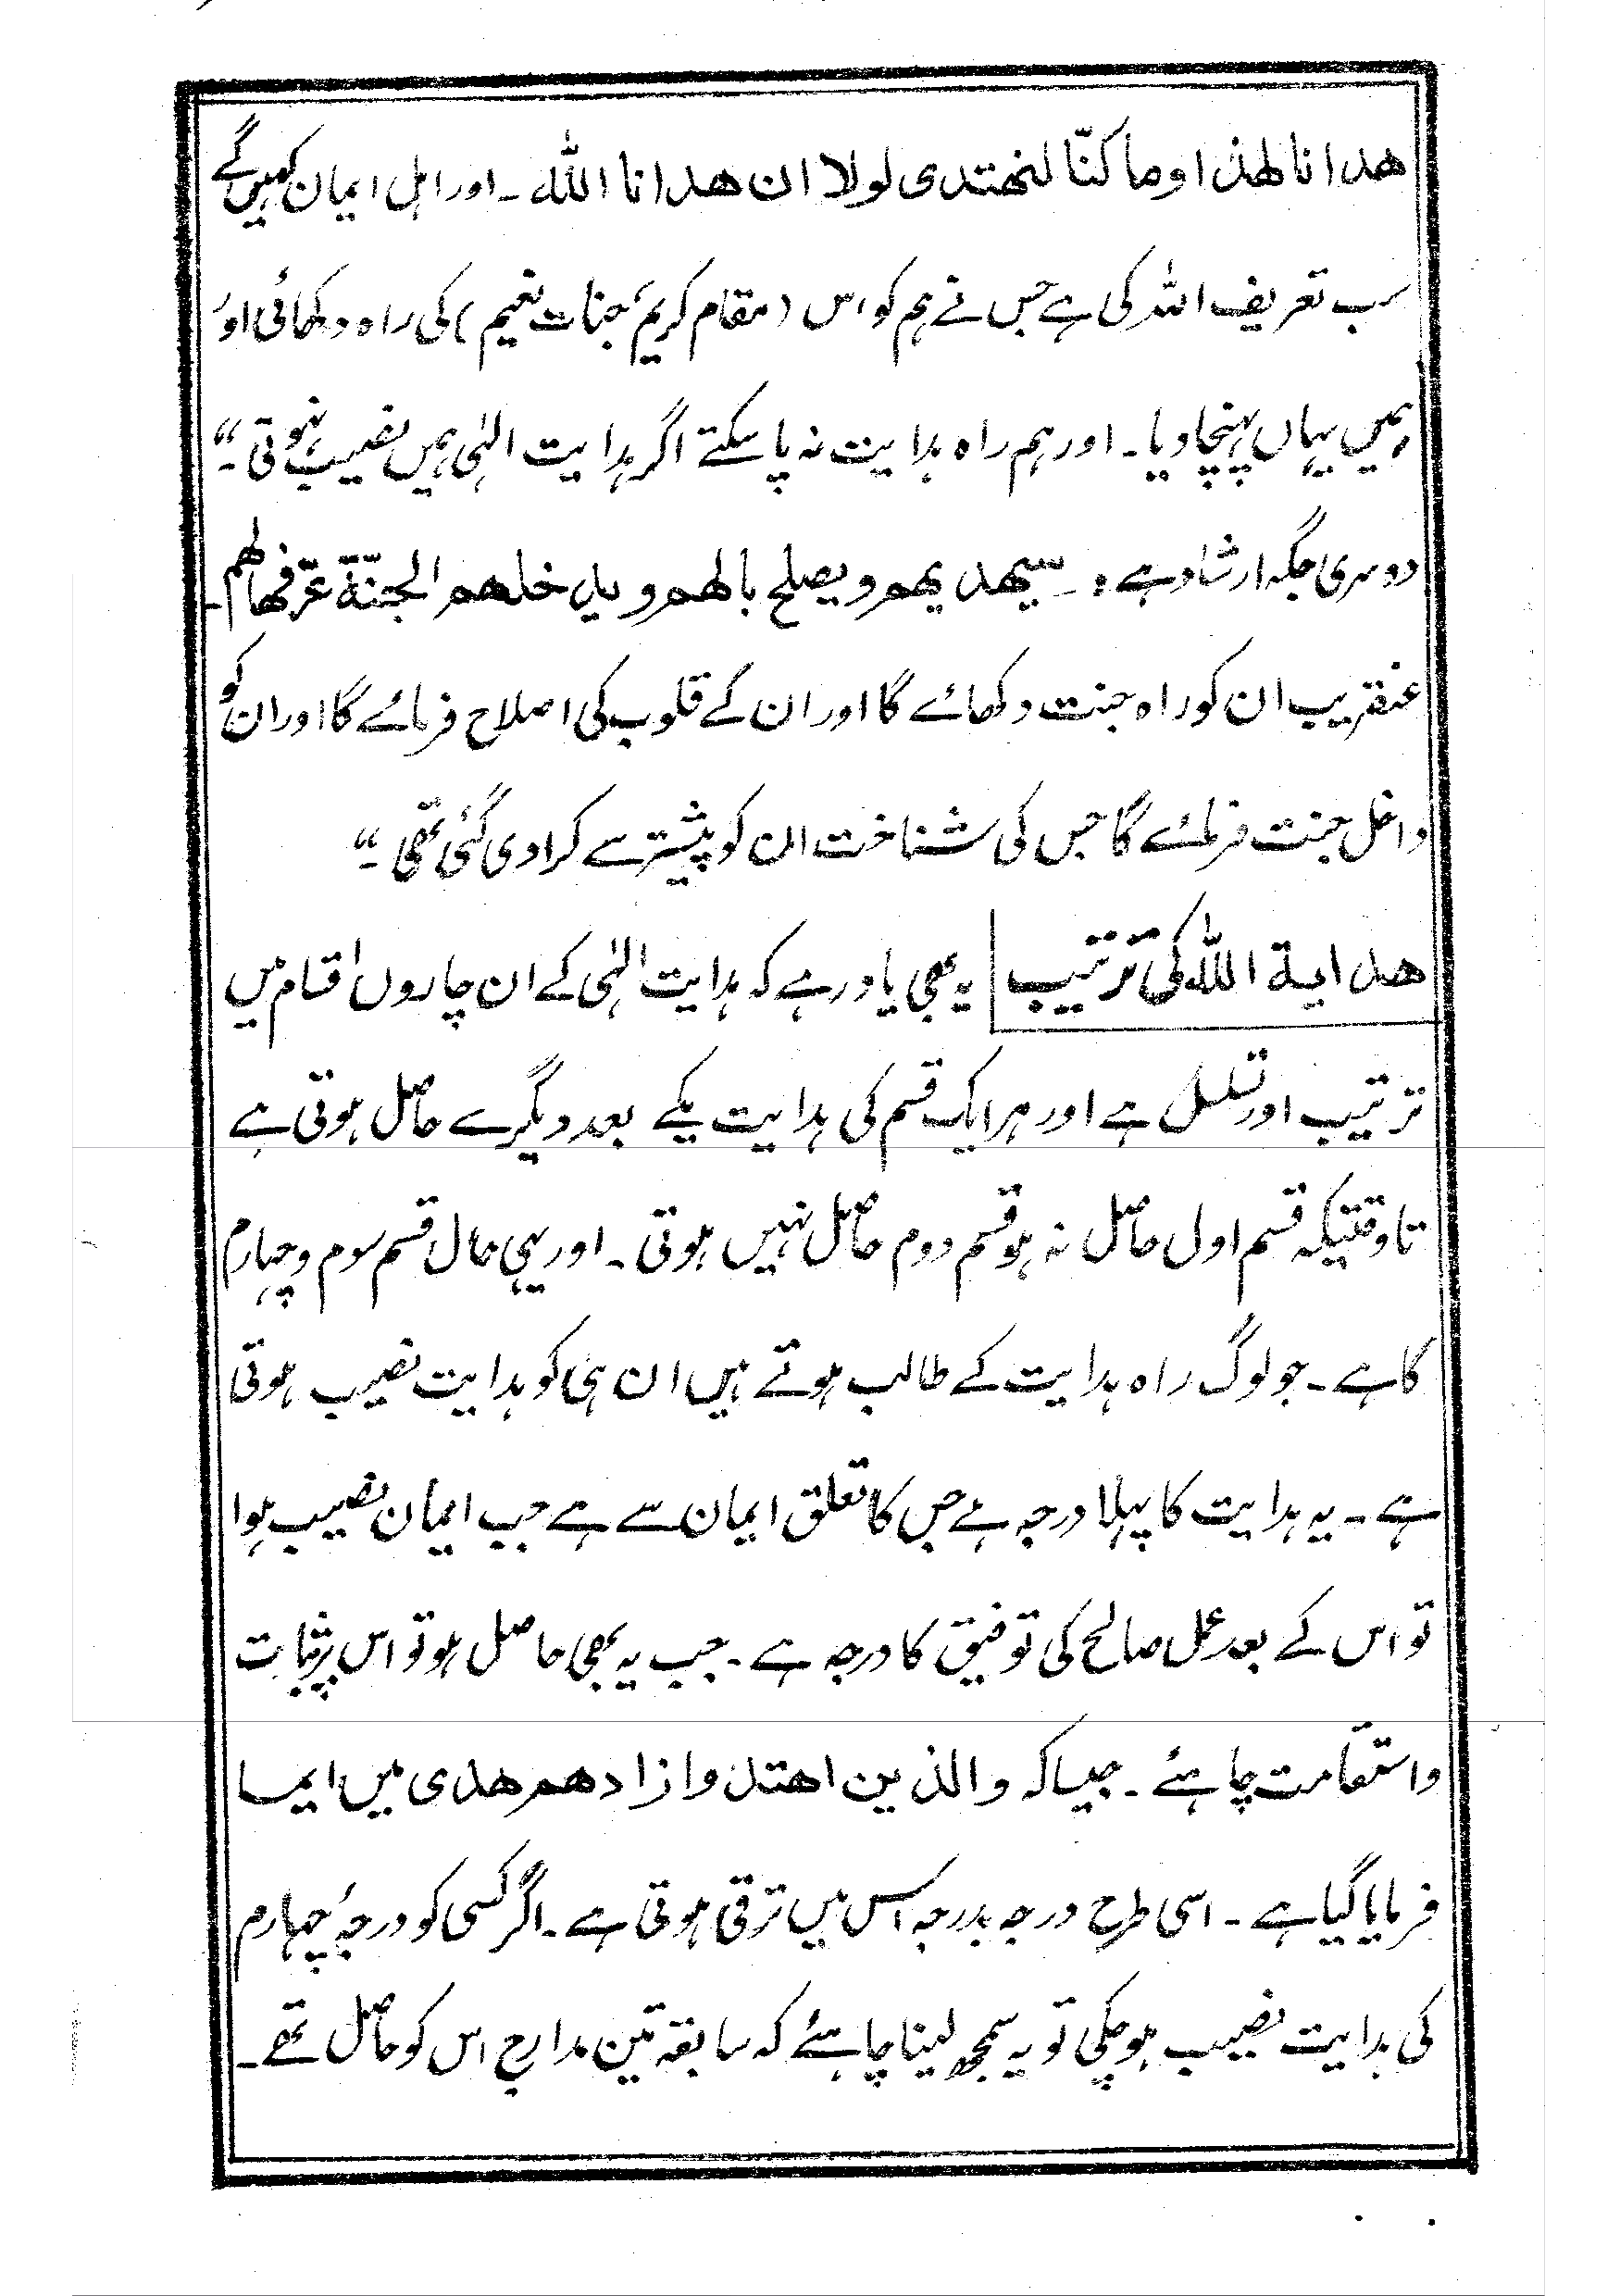 ھدانا لھذا وما کنّا لنھتدی لولا ان ھدانا اللّٰہ ۔ اور اہل ایمان کہیں گے
سب تعریف اللہ کی ہے جس نے ہم کو اس (مقام کریم، جنات نعیم) کی راہ دکھائی اور
ہمیں یہاں پہنچادیا ۔ اور ہم راہ ہدایت نہ پا سکتے اگر ہدایت الٰہی ہمیں نصیب نہ ہوتی ۔“
دوسری جگہ ارشاد ہے : ۔ سیھدیھم و یصلح بالھم و یدخلھم الجنّۃ عرّفھا لھم ۔
عنقریب ان کو راہ جنت دکھائے گا اور ان کے قلوب کی اصلاح فرمائے گا اور ان کو
داخل جنت فرمائے گا جس کی شناخت ان کو پیشتر سے کرا دی گئی تھی ۔“
ھدایۃ اللّٰہ کی ترتیب یہ بھی یاد رہے کہ ہدایت الٰہی کے ان چاروں اقسام میں
ترتیب اور تسلسل ہے اور ہر ایک قسم کی ہدایت یکے بعد دیگرے حاصل ہوتی ہے
تاوقتیکہ قسم اول حاصل نہ ہو قسم دوم حاصل نہیں ہوتی ۔ اور یہی حال قسم سوم و چہارم
کا ہے ۔ جو لوگ راہ ہدایت کے طالب ہوتے ہیں ان ہی کو ہدایت نصیب ہوتی
ہے ۔ یہ ہدایت کا پہلا درجہ ہے جس کا تعلق ایمان سے ہے جب ایمان نصیب ہوا
تو اس کے بعد عمل صالح کی توفیق کا درجہ ہے ۔ جب یہ بھی حاصل ہو تو اس پر ثبات
و استقامت چاہئے ۔ جیسا کہ والذین اھتدوا زادھم ھدی میں ایسا
فرمایا گیا ہے ۔ اسی طرح درجہ بدرجہ اس میں ترقی ہوتی ہے ۔ اگر کسی کو درجۂ چہارم
کی ہدایت نصیب ہو چکی تو یہ سمجھ لینا چاہئے کہ سابقہ تین مدارج اس کو حاصل تھے ۔